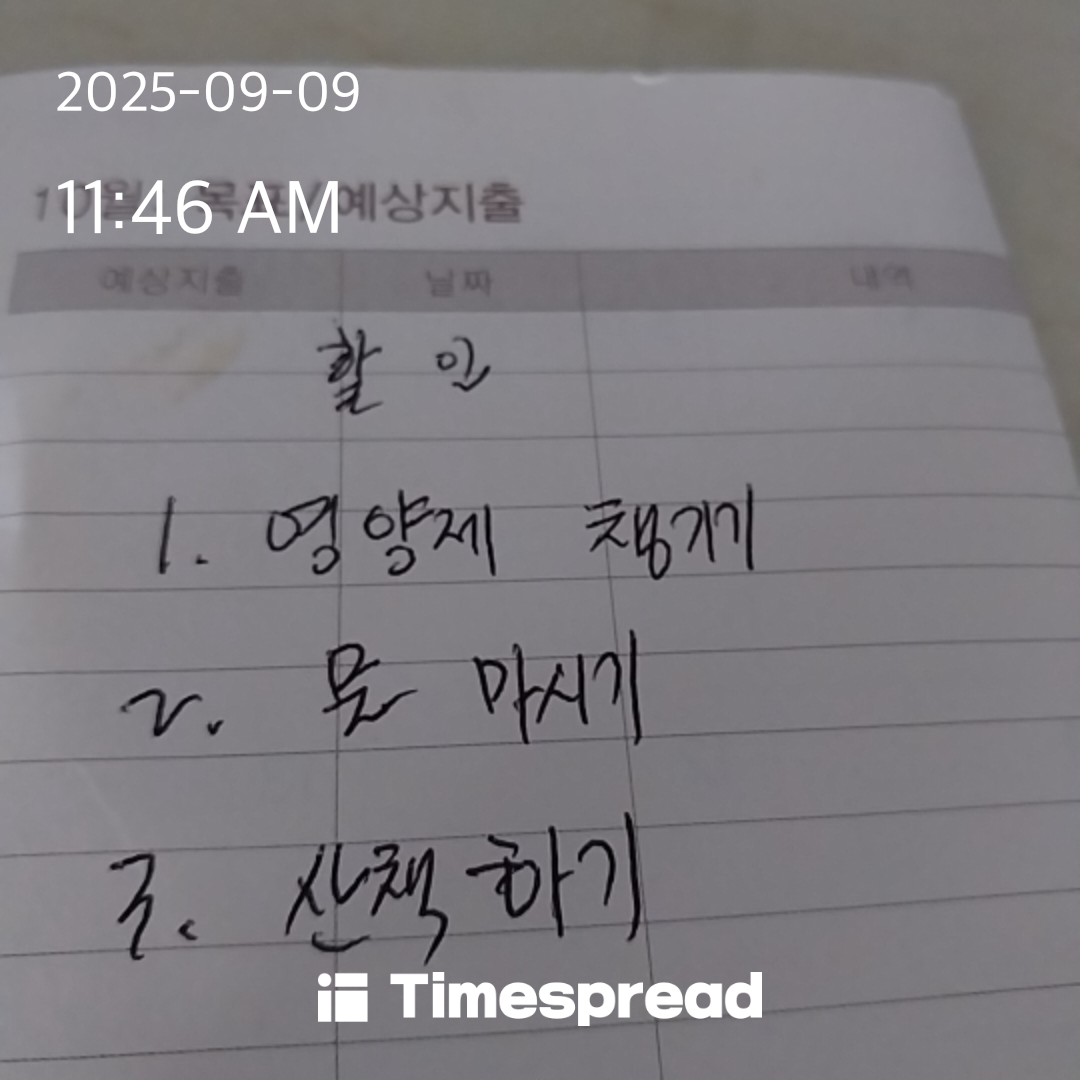 2025-09-09
11:46 AM
예상지출
예상지출 날짜 내역
할 인
1. 영양제 챙기기
2. 물 마시기
3. 산책하기
Timespread